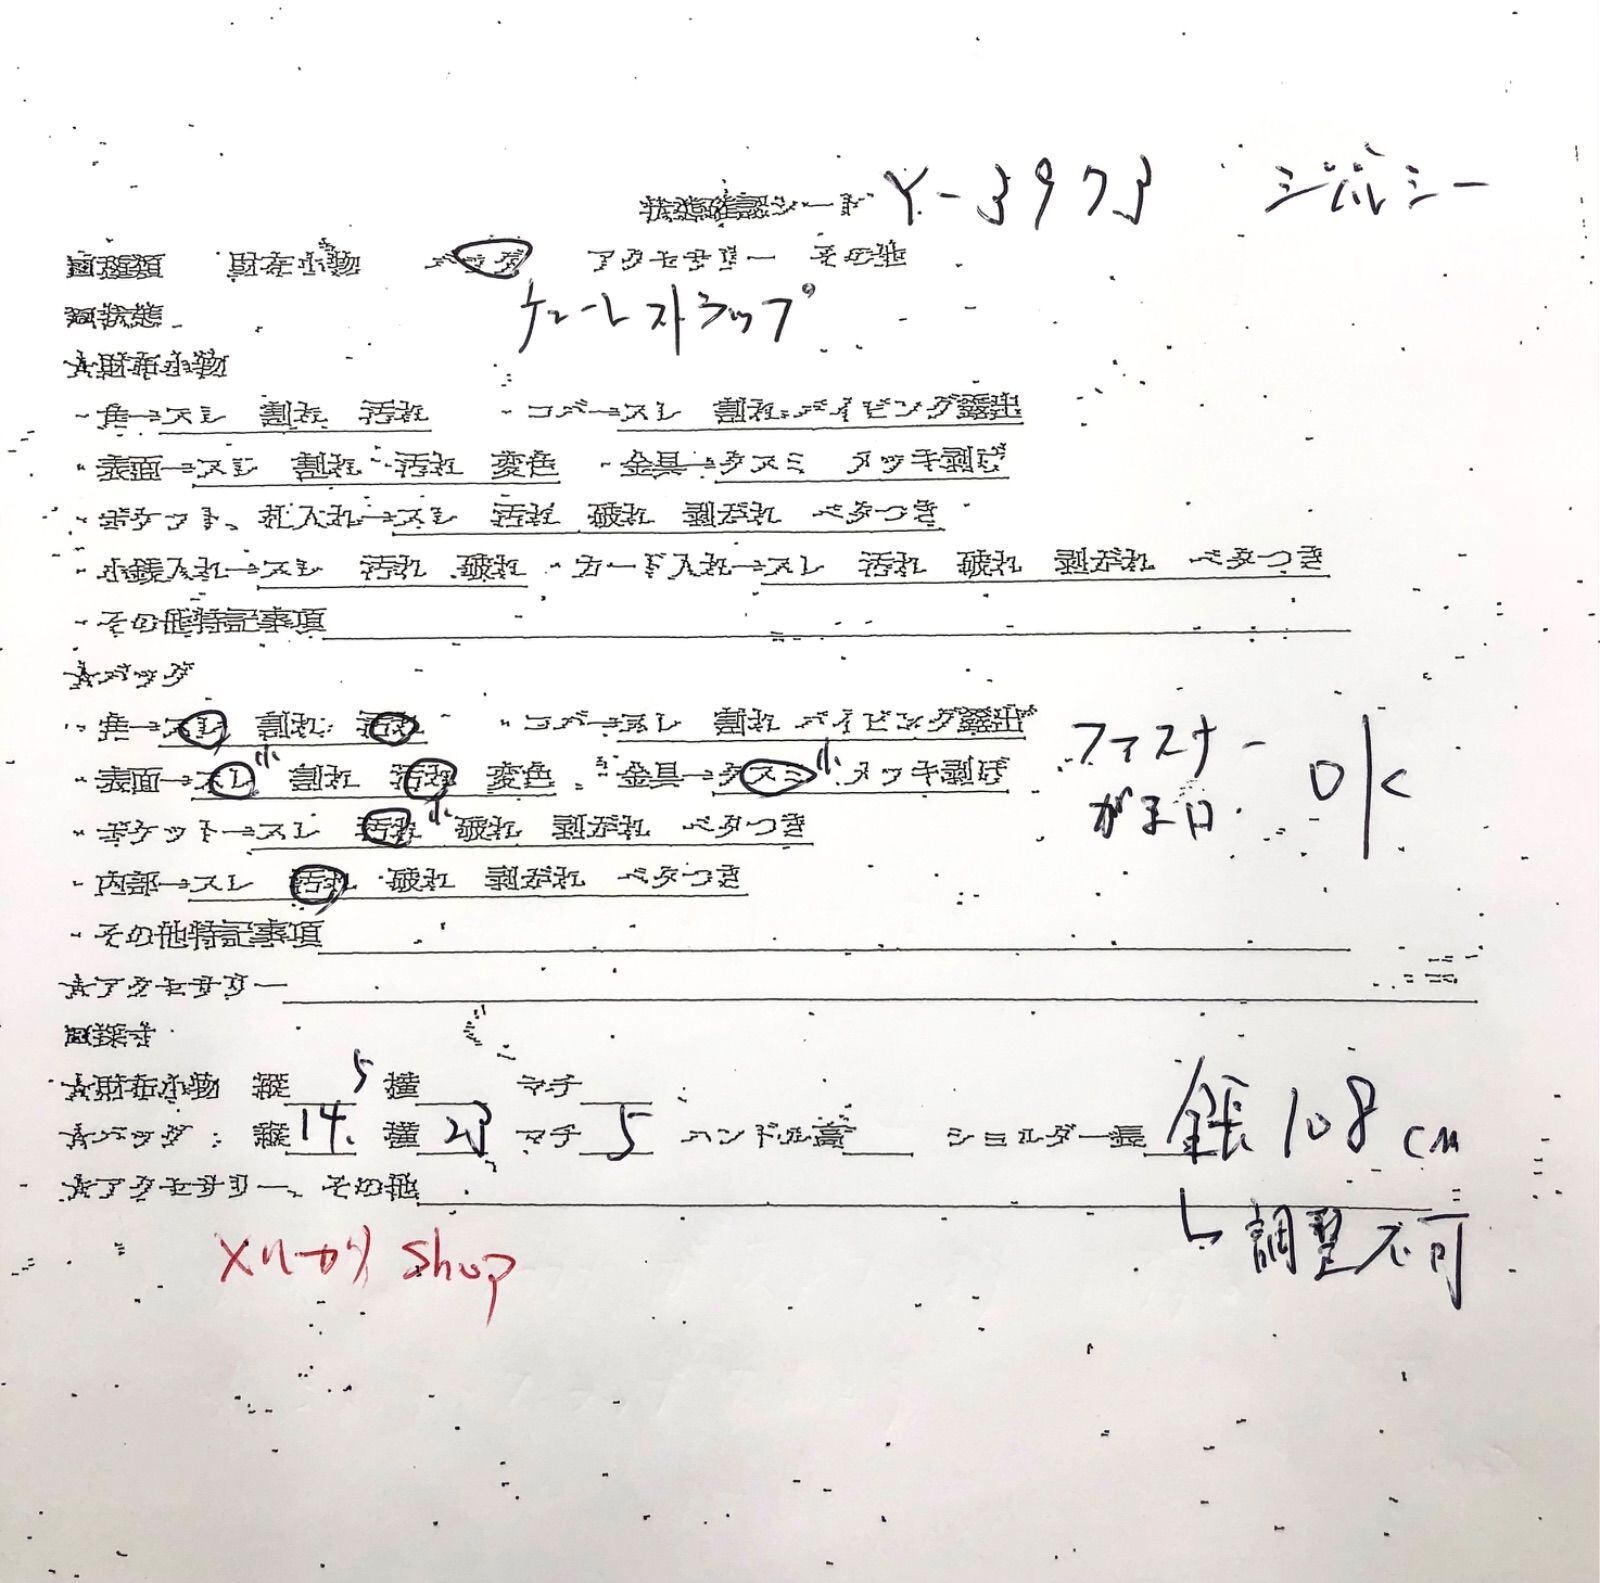 状態確認シート Y-3973
□種類 財布小物 バッグ アクセサリー その他
□状態 チェーンストラップ
☆財布小物
・角→スレ 割れ 汚れ ・コバ→スレ 割れ パイピング露出
・表面→スレ 割れ 汚れ 変色 ・金具→クスミ メッキ剥げ
・ポケット、札入れ→スレ 汚れ 破れ 剥がれ ベタつき
・小銭入れ→スレ 汚れ 破れ ・カード入れ→スレ 汚れ 破れ 剥がれ ベタつき
・その他特記事項
☆バッグ
・角→スレ 割れ 汚れ ・コバ→スレ 割れ パイピング露出 ファスナー
小 小
・表面→スレ 割れ 汚れ 変色 ・金具→クスミ メッキ剥げ がま口 OK
小
・ポケット→スレ 汚れ 破れ 剥がれ ベタつき
・内部→スレ 汚れ 破れ 剥がれ ベタつき
・その他特記事項
☆アクセサリー
□採寸
☆財布小物 縦 横 マチ
☆バッグ:縦 14.5 横 23 マチ 5 ハンドル高 ショルダー長 全長 108 cm
☆アクセサリー、その他
↳ 調整不可
メルカリ shop